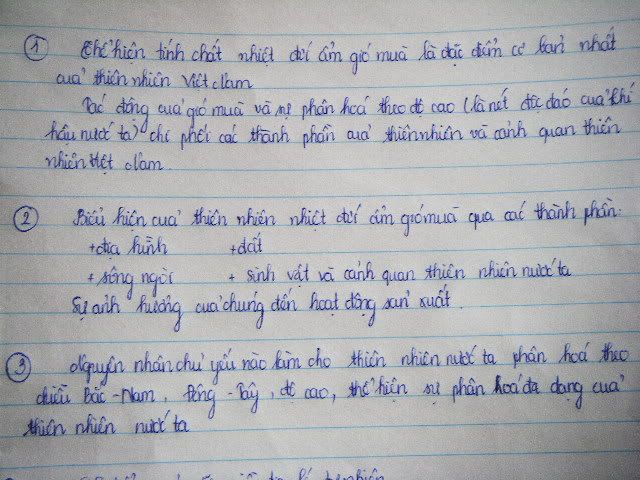 1 Thể hiện tính chất nhiệt đới ẩm gió mùa là đặc điểm cơ bản nhất
của thiên nhiên Việt Nam
Tác động của gió mùa và sự phân hoá theo độ cao (là nét độc đáo của khí
hậu nước ta) chi phối các thành phần của thiên nhiên và cảnh quan thiên
nhiên Việt Nam.
2 Biểu hiện của thiên nhiên nhiệt đới ẩm gió mùa qua các thành phần:
+ địa hình + đất
+ sông ngòi + sinh vật và cảnh quan thiên nhiên nước ta
Sự ảnh hưởng của chúng đến hoạt động sản xuất.
3 Nguyên nhân chủ yếu nào làm cho thiên nhiên nước ta phân hoá theo
chiều Bắc - Nam, Đông - Tây, độ cao, thể hiện sự phân hoá đa dạng của
thiên nhiên nước ta